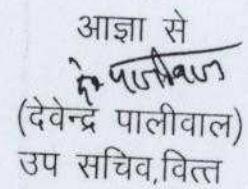 आज्ञा से
दे. पालीवाल
(देवेन्द्र पालीवाल)
उप सचिव,वित्त